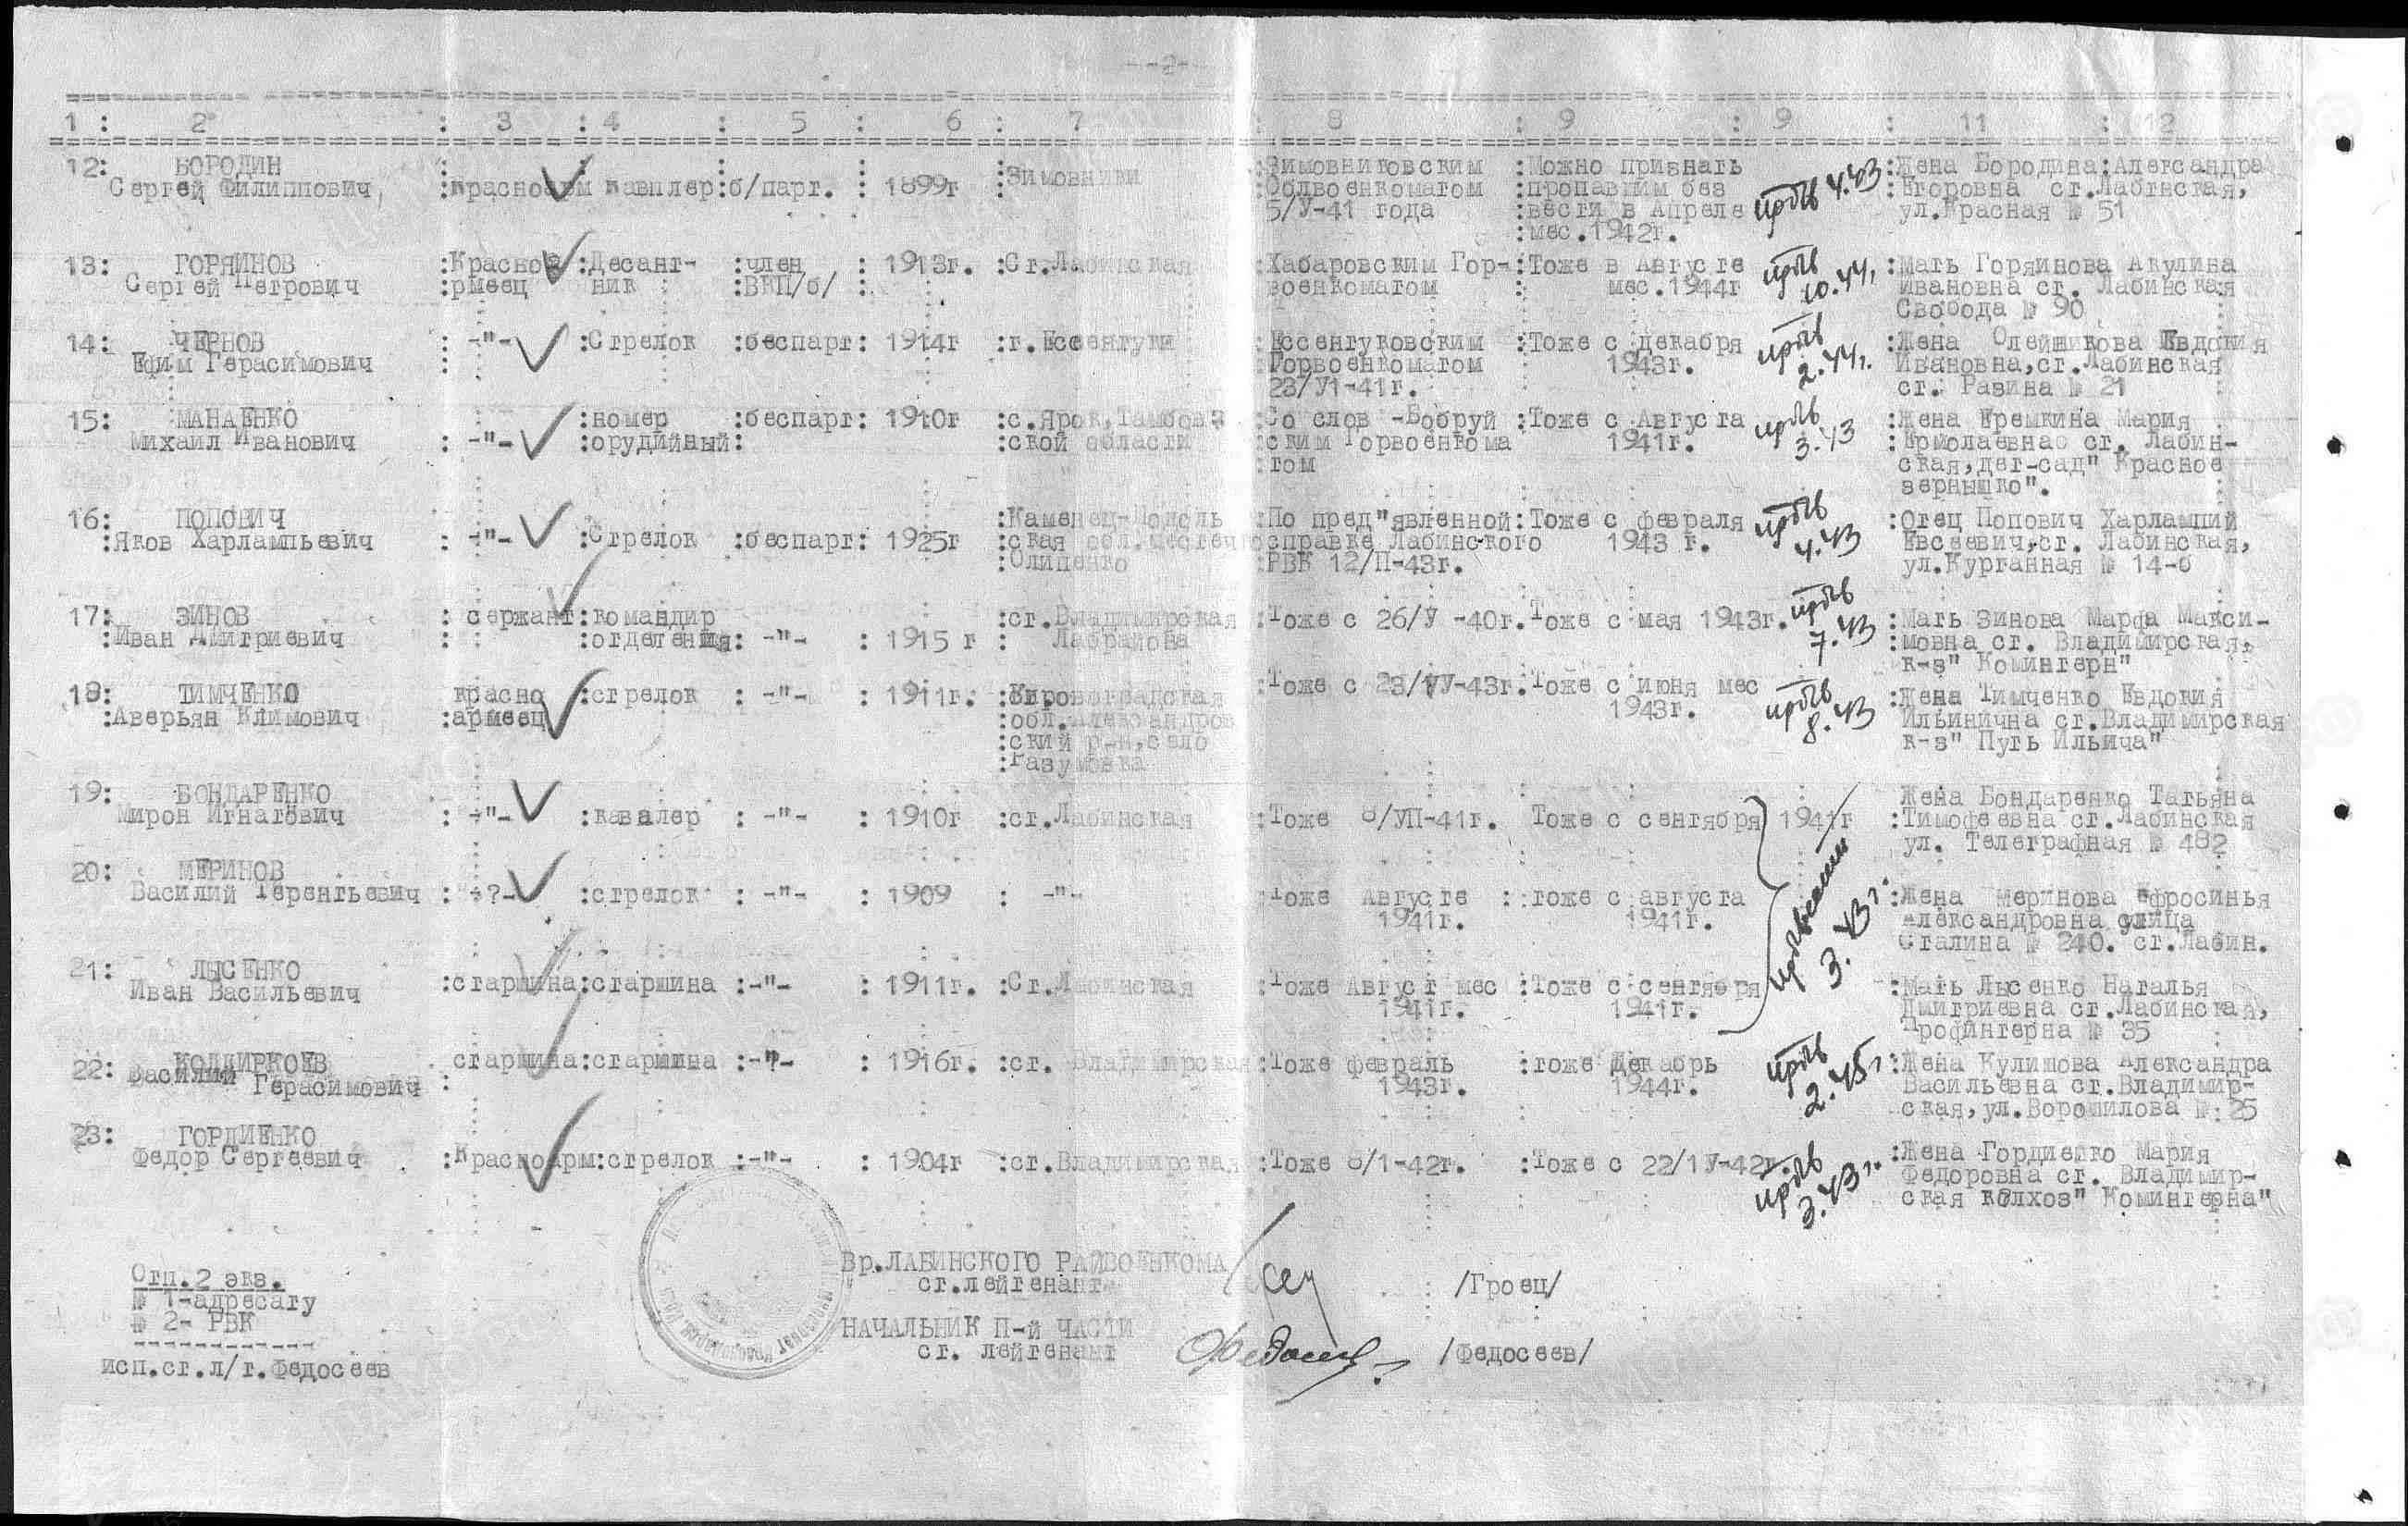 -2-
1 : 2 : 3 : 4 : 5 : 6 : 7 : 8 : 9 : 9 : 11 : 12
12: БОРОДИН
Сергей Филиппович, :красноарм кавплер:б/парт. : 1899г : Зимовники
:Зимовниковским
Облвоенкоматом
5/У-41 года
:Можно признать
:пропавшим без
:вести в Апреле
:мес.1942г.
прбв 4.43
:Жена Бородина:Александра
:Егоровна ст.Лабинская,
ул.Красная № 51
13: ГОРЯИНОВ
Сергей Петрович
:Красноа
:рмеец
:Десант-
ник
:член
:ВКП/б/
: 1913г. :Ст.Лабинская
Хабаровским Гор-
военкоматом
:Тоже в Августе
мес.1944г
прбв
10.44г
:Мать Горяинова Акулина
Ивановна ст. Лабинская
Свобода № 90
14: ЧЕРНОВ
Ефим Герасимович
: -"- :Стрелок :беспарт: 1914г :г.Ессентуки
Ессентуковским
Горвоенкоматом
23/У1-41г.
:Тоже с декабря
1943г.
прбв
2.44г.
:Жена Олейникова Евдокия
Ивановна,ст.Лабинская
ст. Разина № 21
15: МАНАЕНКО
Михаил Иванович
: -"- :номер
:орудийный:
:беспарт: 1910г :с.Ярок,Тамбов
:ской области
Со слов -Бобруй
ским Горвоенкома
том
:Тоже с Августа
1941г.
прбв
3.43
:Жена Еремкина Мария
:Ермолаевна ст. Лабин-
ская,дет-сад" Красное
зернышко".
16: ПОПОВИЧ
:Яков Харлампьевич
: -"- :Стрелок :беспарт: 1925г
:Каменец-Подоль
:ская обл.местеч
:Олипенко
:По пред"явленной
справке Лабинского
:РВК 12/П-43г.
:Тоже с февраля
1943 г.
прбв
4.43
:Отец Попович Харлампий
Евсеевич,ст. Лабинская,
ул.Курганная № 14-б
17: ЗИНОВ
:Иван Дмитриевич
: сержант:командир
:отделения: -"- : 1915 г
:ст.Владимирская
: Лабрайона
:Тоже с 26/У -40г.Тоже с мая 1943г.
прбв
7.43
:Мать Зинова Марфа Макси-
:мовна ст. Владимирская,
к-з" Коминтерн"
18: ТИМЧЕНКО
:Аверьян Климович
красно
:армеец
:стрелок : -"- : 1911г.
:Кировоградская
:обл.Александров
:ский р-н,село
:Разумовка
:Тоже с 23/УУ-43г.Тоже с июня мес
1943г.
прбв
8.43
:Жена Тимченко Евдокия
Ильинична ст.Владимирская
к-з" Путь Ильича"
19: БОНДАРЕНКО
Мирон Игнатович
: -"- :кавалер : -"- : 1910г :ст.Лабинская
:Тоже 8/УП-41г. Тоже с сентября 1941г
Жена Бондаренко Татьяна
:Тимофеевна ст.Лабинская
ул. Телеграфная № 482
20: МЕРИНОВ
Василий Терентьевич
: -?- :стрелок : -"- : 1909 : -"-
Тоже Августе
1941г.
: тоже с августа
1941г.
пр. в
3.43г.
:Жена Меринова Ефросинья
Александровна улица
Сталина № 240. ст.Лабин.
21: ЛЫСЕНКО
Иван Васильевич
:старшина:старшина :-"- : 1911г. :Ст.Лабинская
:Тоже Август мес
1941г.
:Тоже с сентября
1941г.
:Мать Лысенко Наталья
Дмитриевна ст.Лабинская,
Профинтерна № 35
22: КОЛДИРКОЕВ
Василий Герасимович
старшина:старшина :-"- : 1916г. :ст. Владимирская
:Тоже февраль
1943г.
:тоже Декабрь
1944г.
прбв
2.45г
:Жена Кулишова Александра
Васильевна ст.Владимир-
ская,ул.Ворошилова №:25
23: ГОРДИЕНКО
Федор Сергеевич
:Красноарм:стрелок :-"- : 1904г :ст.Владимирская
:Тоже 8/1-42г. :Тоже с 22/1У-42г.
прбв
3.43г.
:Жена Гордиенко Мария
Федоровна ст. Владимир-
ская колхоз" Коминтерна"
Вр.ЛАБИНСКОГО РАЙВОЕНКОМА
ст.лейтенант /Троец/
НАЧАЛЬНИК П-й ЧАСТИ
ст. лейтенант Федосеев /Федосеев/
Отп.2 экз.
№ 1-адресату
№ 2- РВК
исп.ст.л/т.Федосеев